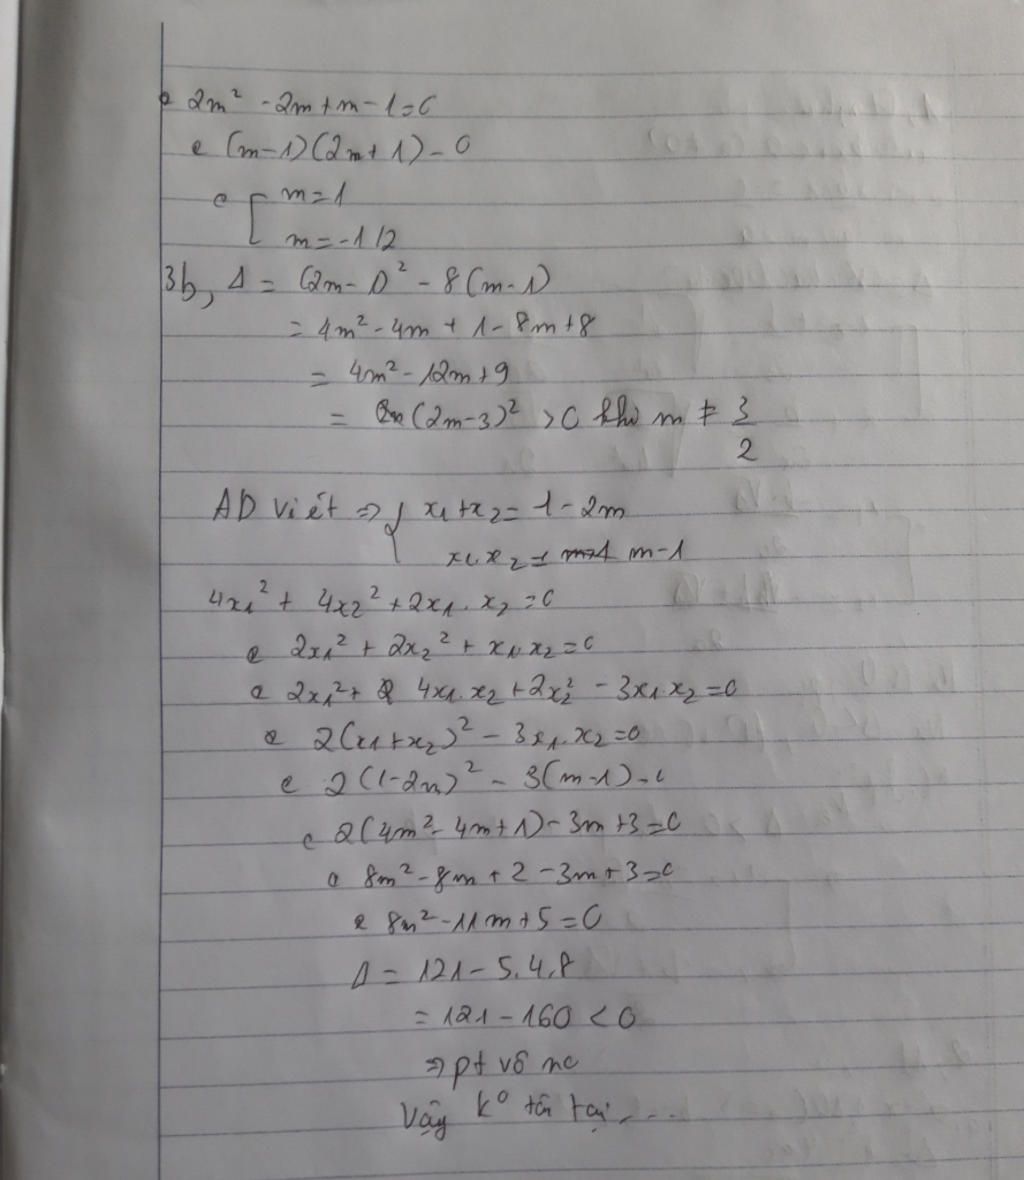 ⇔ 2m² - 2m + m - 1 = 0
⇔ (m-1)(2m+1) = 0
⇔ [ m = 1
m = -1/2
3b, Δ = (2m-1)² - 8(m-1)
= 4m² - 4m + 1 - 8m + 8
= 4m² - 12m + 9
= (2m-3)² > 0 khi m ≠ 3/2
AD Viét ⇒ { x₁ + x₂ = 1 - 2m
x₁.x₂ = m-1
4x₁² + 4x₂² + 2x₁.x₂ = 0
⇔ 2x₁² + 2x₂² + x₁.x₂ = 0
⇔ 2x₁² + 4x₁.x₂ + 2x₂² - 3x₁.x₂ = 0
⇔ 2(x₁+x₂)² - 3x₁.x₂ = 0
⇔ 2(1-2m)² - 3(m-1) = 0
⇔ 2(4m² - 4m + 1) - 3m + 3 = 0
⇔ 8m² - 8m + 2 - 3m + 3 = 0
⇔ 8m² - 11m + 5 = 0
Δ = 121 - 5.4.8
= 121 - 160 < 0
⇒ pt vô no
Vậy k⁰ tồn tại ...